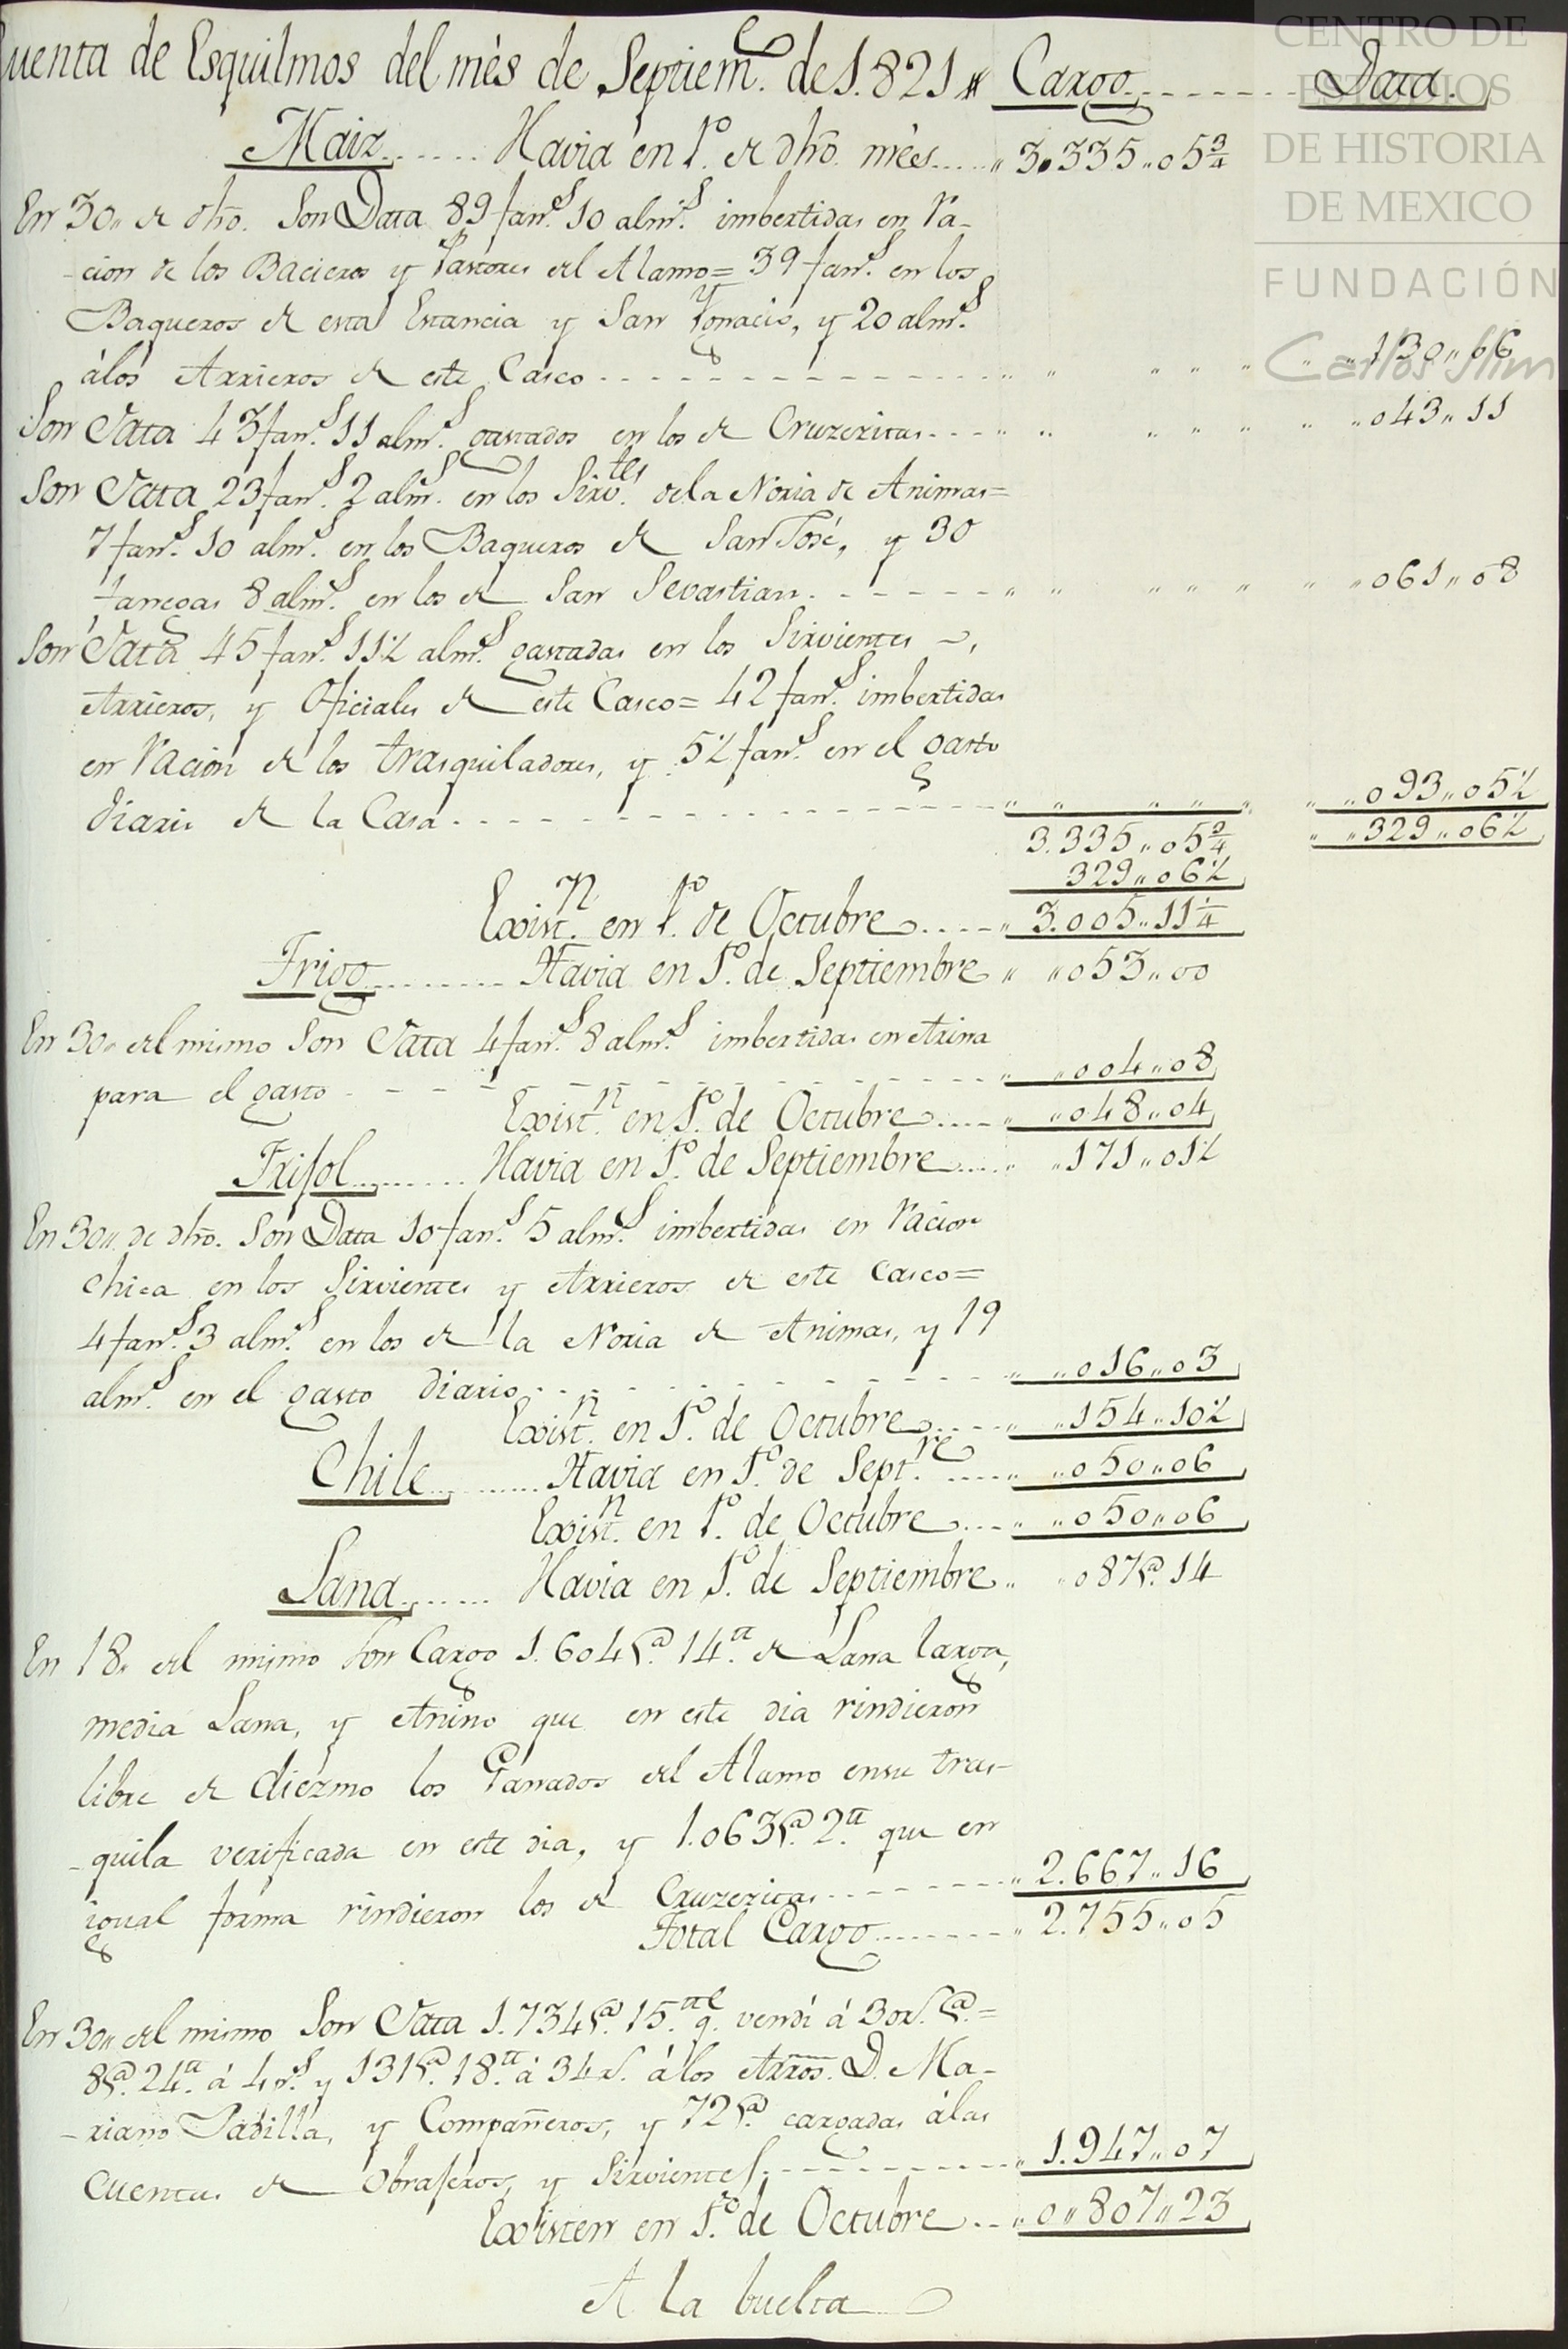 Cuenta de Esquilmos del més de Septiem.e de 1.821 Cargo Data.
Maiz Havia en 1.o de dho. més 3.335,,05 3/4
En 30,, de dho. Son Data 89 fan.s 10 alm.s imbertidas en Ra-
-cion de los Bacieros y Pastores del Alamo= 39 fan.s en los
Baqueros de esta Estancia y San Ygnacio, y 20 alm.s
álos Arrieros de este Casco 130,,06
Son Data 43 fan.s 11 alm.s gastados en los de Cruzeritas 043,,11
Son Data 23 fan.s 2 alm.s en los Sirv.tes dela Noria de Animas=
7 fan.s 10 alm.s en los Baqueros de San José, y 30
fanegas 8 alm.s en los de San Sevastian 061,,08
Son Data 45 fan.s 11½ alm.s gastadas en los Sirvientes,
Arrieros, y Oficiales de este Casco= 42 fan.s imbertidas
en Racion de los trasquiladores, y 5½ fan.s en el gasto
diario de la Casa 093,,05½
3.335,,05 3/4 329,,06½
329,,06½
Exist.n en 1.o de Octubre 3.005,,11¼
Trigo Havia en 1.o de Septiembre 053,,00
En 30,, del mismo Son Data 4 fan.s 8 alm.s imbertidas en Arina
para el gasto 004,,08
Exist.n en 1.o de Octubre 048,,04
Frisol Havia en 1.o de Septiembre 171,,01½
En 30,, de dho. Son Data 10 fan.s 5 alm.s imbertidas en Racion
chica en los Sirvientes y Arrieros de este Casco=
4 fan.s 3 alm.s en los de la Noria de Animas, y 19
alm.s en el gasto diario 016,,03
Exist.n en 1.o de Octubre 154,,10½
Chile Havia en 1.o de Sept.re 050,,06
Exist.n en 1.o de Octubre 050,,06
Lana Havia en 1.o de Septiembre 087@. 14
En 18,, del mismo Son Cargo 1.604@. 14.tt de Lana larga,
media Lana, y Anino que en este dia rindieron
libre de diezmo los Ganados del Alamo ensu tras-
-quila verificada en este dia, y 1.063@. 2.tt que en
igual forma rindieron los de Cruzeritas 2.667,,16
Total Cargo 2.755,,05
En 30,, del mismo Son Data 1.734@. 15.tt q.e vendí á 30r.s @.=
8@. 24.tt á 4 p.s y 131@. 18.tt á 34 r.s á los Arros. D. Ma-
-riano Padilla, y Compañeros, y 72@. cargadas álas
Cuentas de Obrajeros, y Sirvientes 1.947,,07
Existen en 1.o de Octubre 0,,807,,23
A la buelta
CENTRO DE
ESTUDIOS
DE HISTORIA
DE MEXICO
FUNDACIÓN
Carlos Slim